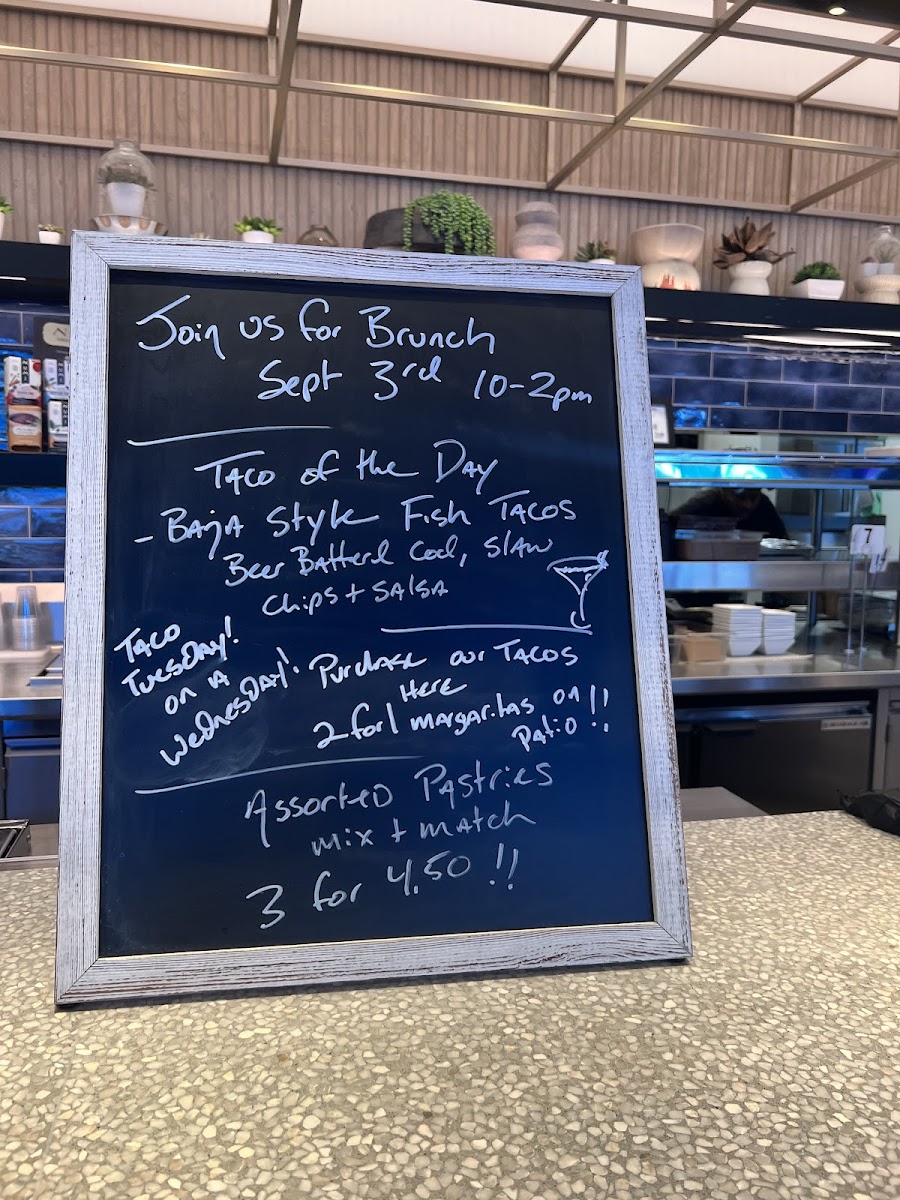 Join us for Brunch
Sept 3rd 10-2pm
Taco of the Day
- Baja Style Fish Tacos
Beer Batterd Cod, Slaw
Chips + Salsa
Taco
Tuesday!
on a
Wednesday!
Purchase our Tacos
Here
2 for 1 margaritas on !!
Patio
Assorted Pastries
mix + match
3 for 4.50 !!
7